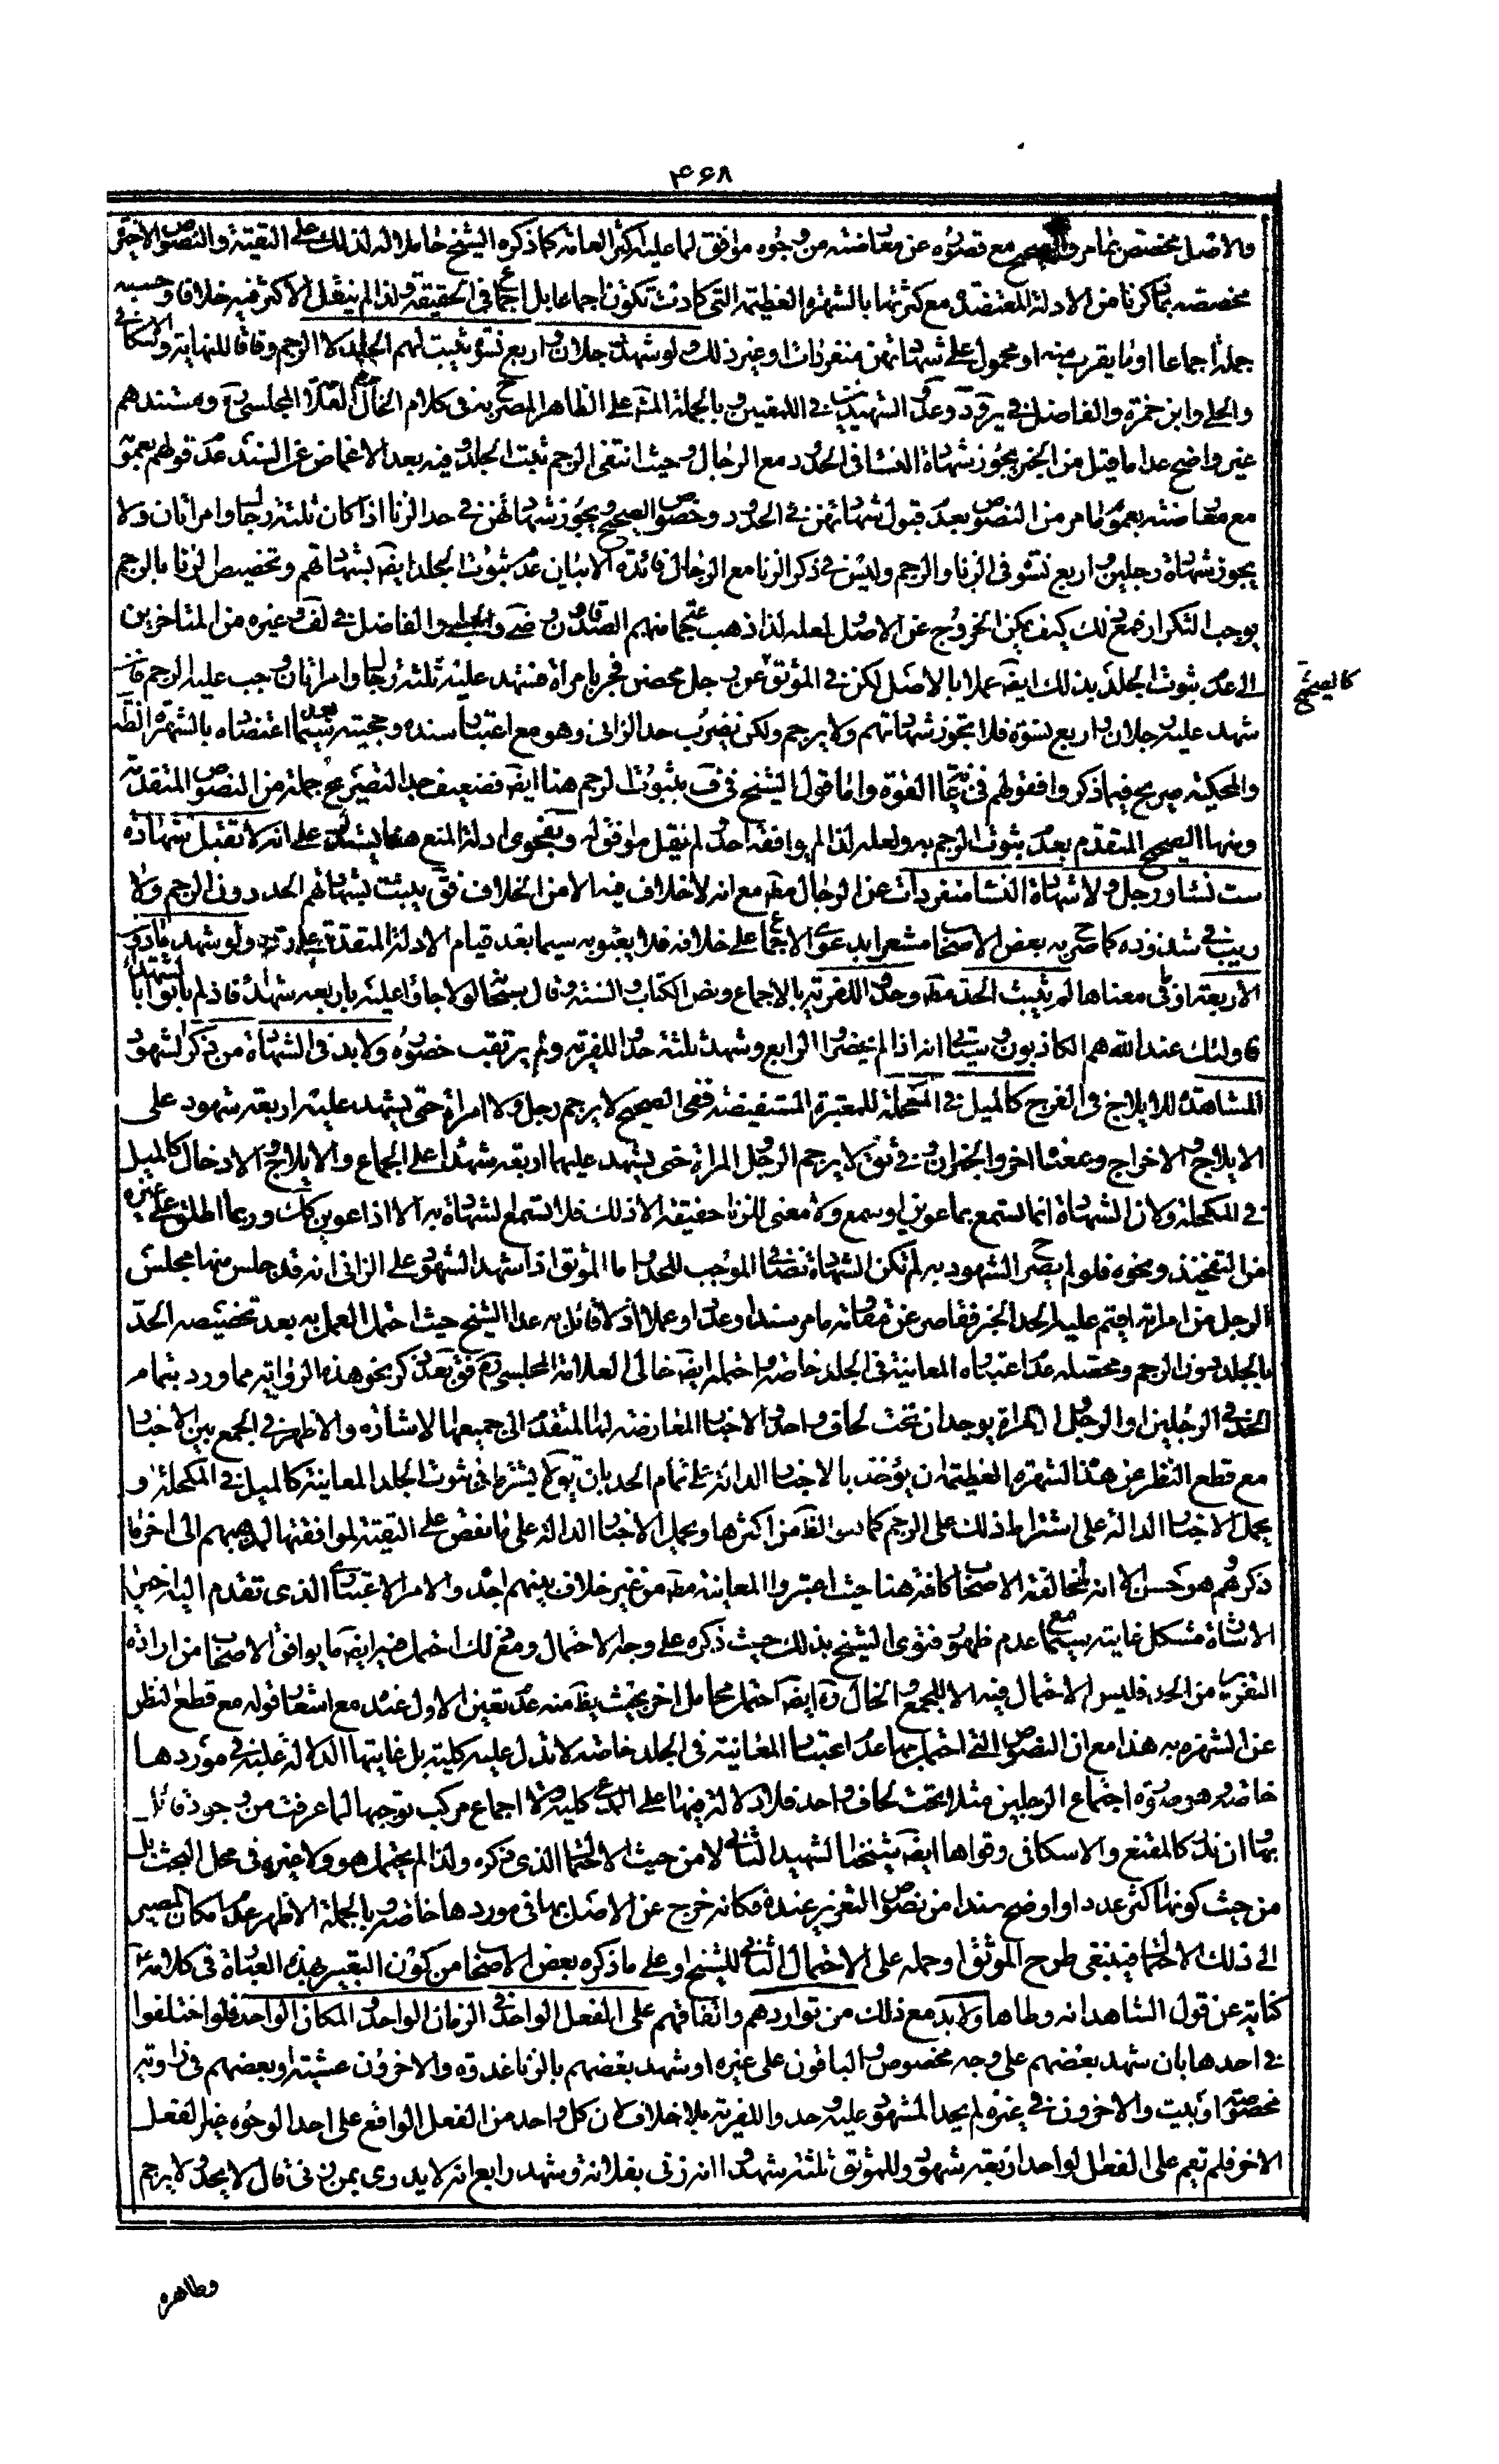 ۴۶۸
والاصل مخصص بما مر والصحيح مع قصوره عن معارضته من وجوه موافق لما عليه اكثر العامة كما ذكره الشيخ حاملا له لذلك على التقية والنصوص الاخر
مخصصه بما ذكرنا من الادلة المعتضدة مع كثرتها بالشهرة العظيمة التي كادت تكون اجماعا بل اجماع في الحقيقة ولذا لم ينقل الاكثر فيه خلافا وحسبه
جملة اجماعا او ما يقرب منه او محمول على شهادتهن منفردات او غير ذلك ولو شهد رجلان واربع نسوة يثبت لهم الجلد لا الرجم وفاقا للنهاية والاسكافي
والحلي وابن حمزة والفاضل في ير ود وعد والشهيدين في اللمعتين وبالجملة المشهور على الظاهر المصرح به في كلام الخال العلامة المجلسي ره ومستندهم
غير واضح عدا ما قيل من الخبر يجوز شهادة النساء في الحدود مع الرجال وحيث انتفى الرجم ثبت الجلد وفيه بعد الاغماض عن السند عدم قولهم بعمومه
مع معارضته بعموم ما مر من النصوص بعدم قبول شهادتهن في الحدود وخصوص الصحيح يجوز شهادتهن في حد الزنا اذا كان ثلثة رجال وامراتان ولا
يجوز شهادة رجلين واربع نسوة في الزنا والرجم وليس في ذكر الزنا مع الرجال فائدة الا بيان عدم ثبوت الجلد ايضا بشهادتهم وتخصيص الزنا بالرجم
يوجب التكرار فمع ذلك كيف يمكن الخروج عن الاصل لعله لذا ذهب جماعة منهم الصدوقان وضي والحلبي والفاضل في لف وغيره من المتاخرين
الى عدم ثبوت الجلد بذلك ايضا عملا بالاصل لكن في الموثق عن رجل محصن فجر بامراة فشهد عليه ثلثة رجال وامراتان وجب عليه الرجم فان
كالصحيح
شهد عليه رجلان واربع نسوة فلا تجوز شهادتهم ولا يرجم ولكن يضرب حد الزاني وهو مع اعتبار سنده وحجيته سيما بعد اعتضاده بالشهرة الظاهرة
والمحكية صريح فيما ذكر وافقولهم في غاية القوة واما قول الشيخ في ف بثبوت الرجم هنا ايضا فضعيف جدا لتصريح جملة من النصوص المتقدمة
ومنها الصحيح المتقدم بعدم ثبوت الرجم به ولعله لذا لم يوافقه احد ولم نقل موافق له وبفحوى ادلة المنع هنا يستدل على انه لا تقبل شهادة
ست نساء ورجل ولا شهادة النساء منفردات عن الرجال مطلقا مع انه لا خلاف فيه الا من الخلاف فق يثبت بشهادتهم الحد دون الرجم ولا
ريب في شذوذه كما صرح به بعض الاصحاب مشعرا بدعوى الاجماع على خلافه فلا يعبؤ به سيما بعد قيام الادلة المتقدمة على رده ولو شهد ما دون
الاربعة او في معناها لم يثبت الحد مطلقا وحدوا للفرية بالاجماع ونص الكتاب والسنة وقال سبحانه لولا جاؤا عليه باربعة شهداء فاذ لم ياتوا بالشهداء
فاولئك عند الله هم الكاذبون وسيأتي انه اذا لم يحضر الرابع وشهد ثلثة حدوا للفرية ولم يرتقب حضوره ولا بد في الشهادة من ذكر الشهود
المشاهدة للايلاج في الفرج كالميل في المكحلة للمعتبرة المستفيضة ففي الصحيح لا يرجم رجل ولا امراة حتى يشهد عليه اربعة شهود على
الايلاج والاخراج وبمعناه اخر والخبران وفي ثق لا يرجم الرجل والمراة حتى يشهد عليهما اربعة شهداء على الجماع والايلاج والادخال كالميل
في المكحلة ولان الشهادة انما تسمع بما عوين او سمع ولا معنى للزنا حقيقة الا ذلك فلا تسمع الشهادة به الا اذا عوين كك وربما اطلق على غيره
من التفخيذ ونحوه فلو لم يصرح الشهود به لم تكن الشهادة نصا في الموجب للحد واما الموثق اذا شهد الشهود على الزاني انه قد جلس منها مجلس
الرجل من امراته اقيم عليه الحد الخبر فقاصر عن مقاومة ما مر سندا وعددا وعملا اذ لا قائل به عدا الشيخ حيث احتمل العمل به بعد تخصيصه الحد
بالجلد دون الرجم ومحصله عدم اعتبار المعاينة في الجلد خاصة واحتمله ايضا خالي العلامة المجلسي ره فق بعد ذكر نحو هذه الرواية مما ورد بتمام
الحد في الرجلين او الرجل والمراة يوجدان تحت لحاف واحد والاخبار المعارضة لها المتقدم الى جميعها الاشارة والاظهر في الجمع بين الاخبار
مع قطع النظر عن هذه الشهرة العظيمة ان يؤخذ بالاخبار الدالة على تمام الحد بان يق لا يشترط في ثبوت الجلد المعاينة كالميل في المكحلة و
يحمل الاخبار الدالة على اشتراط ذلك على الرجم كما هو الظاهر من اكثرها ويحمل الاخبار الدالة على ما نقص على التقية لموافقتها لمذهبهم الى اخر ما
ذكره وهو حسن الا انه لمخالفته الاصحاب كافة هنا حيث اعتبروا المعاينة مطلقا من غير خلاف بينهم اجده والامر الاعتباري الذي تقدم اليه اخيرا
الاشارة مشكل غايته سيما مع عدم ظهور فتوى الشيخ بذلك حيث ذكره على وجه الاحتمال ومع ذلك احتمل فيه ايضا ما يوافق الاصحاب من ارادة
التعزير من الحد فليس الاحتمال فيه الا للجمع والخال ره ايضا احتمل محامل اخر بحيث يظهر منه عدم تعين الاول عنده مع اشعار قوله مع قطع النظر
عن الشهرة به هذا مع ان النصوص التي احتمل بها عدم اعتبار المعاينة في الجلد خاصة لا تدل عليه كلية بل غايتها الدلالة عليه في موردها
خاصة وهو صورة اجتماع الرجلين مثلا تحت لحاف واحد فلا دلالة فيها على المدعى كلية ولا اجماع مركب توجبها لما عرفت من وجود قائل
بها ان نذر كالمقنع والاسكافي وقواها ايضا شيخنا الشهيد الثاني لا من حيث الاحتمال الذي ذكره ولذا لم يحتمل هو ولا غيره في محل البحث بل
من حيث كونها اكثر عددا واوضح سندا من نصوص التعزير عنده فكانه خرج عن الاصل بها في موردها خاصة وبالجملة الاظهر عدم امكان المصير
الى ذلك الاحتمال فينبغي طرح الموثق او حمله على الاحتمال الثاني للشيخ او على ما ذكره بعض الاصحاب من كون التعبير بهذه العبارة في كلامه ع
كناية عن قول الشاهد انه وطاها ولا بد مع ذلك من تواردهم واتفاقهم على الفعل الواحد في الزمان الواحد والمكان الواحد فلو اختلفوا
في احدها بان شهد بعضهم على وجه مخصوص والباقون على غيره او شهد بعضهم بالزنا غدوة والاخرون عشية او بعضهم في زاوية
مخصوصة او بيت والاخرون في غيره لم يحد المشهود عليه وحدوا للفرية بلا خلاف لان كل واحد من الفعل الواقع على احد الوجوه غير الفعل
الاخر فلم تقم على الفعل الواحد اربعة شهود وللموثق ثلثة شهدوا انه زنى بفلانة وشهد رابع انه لا يدري بمن زنى قال لا يحد ولا يرجم
وظاهره